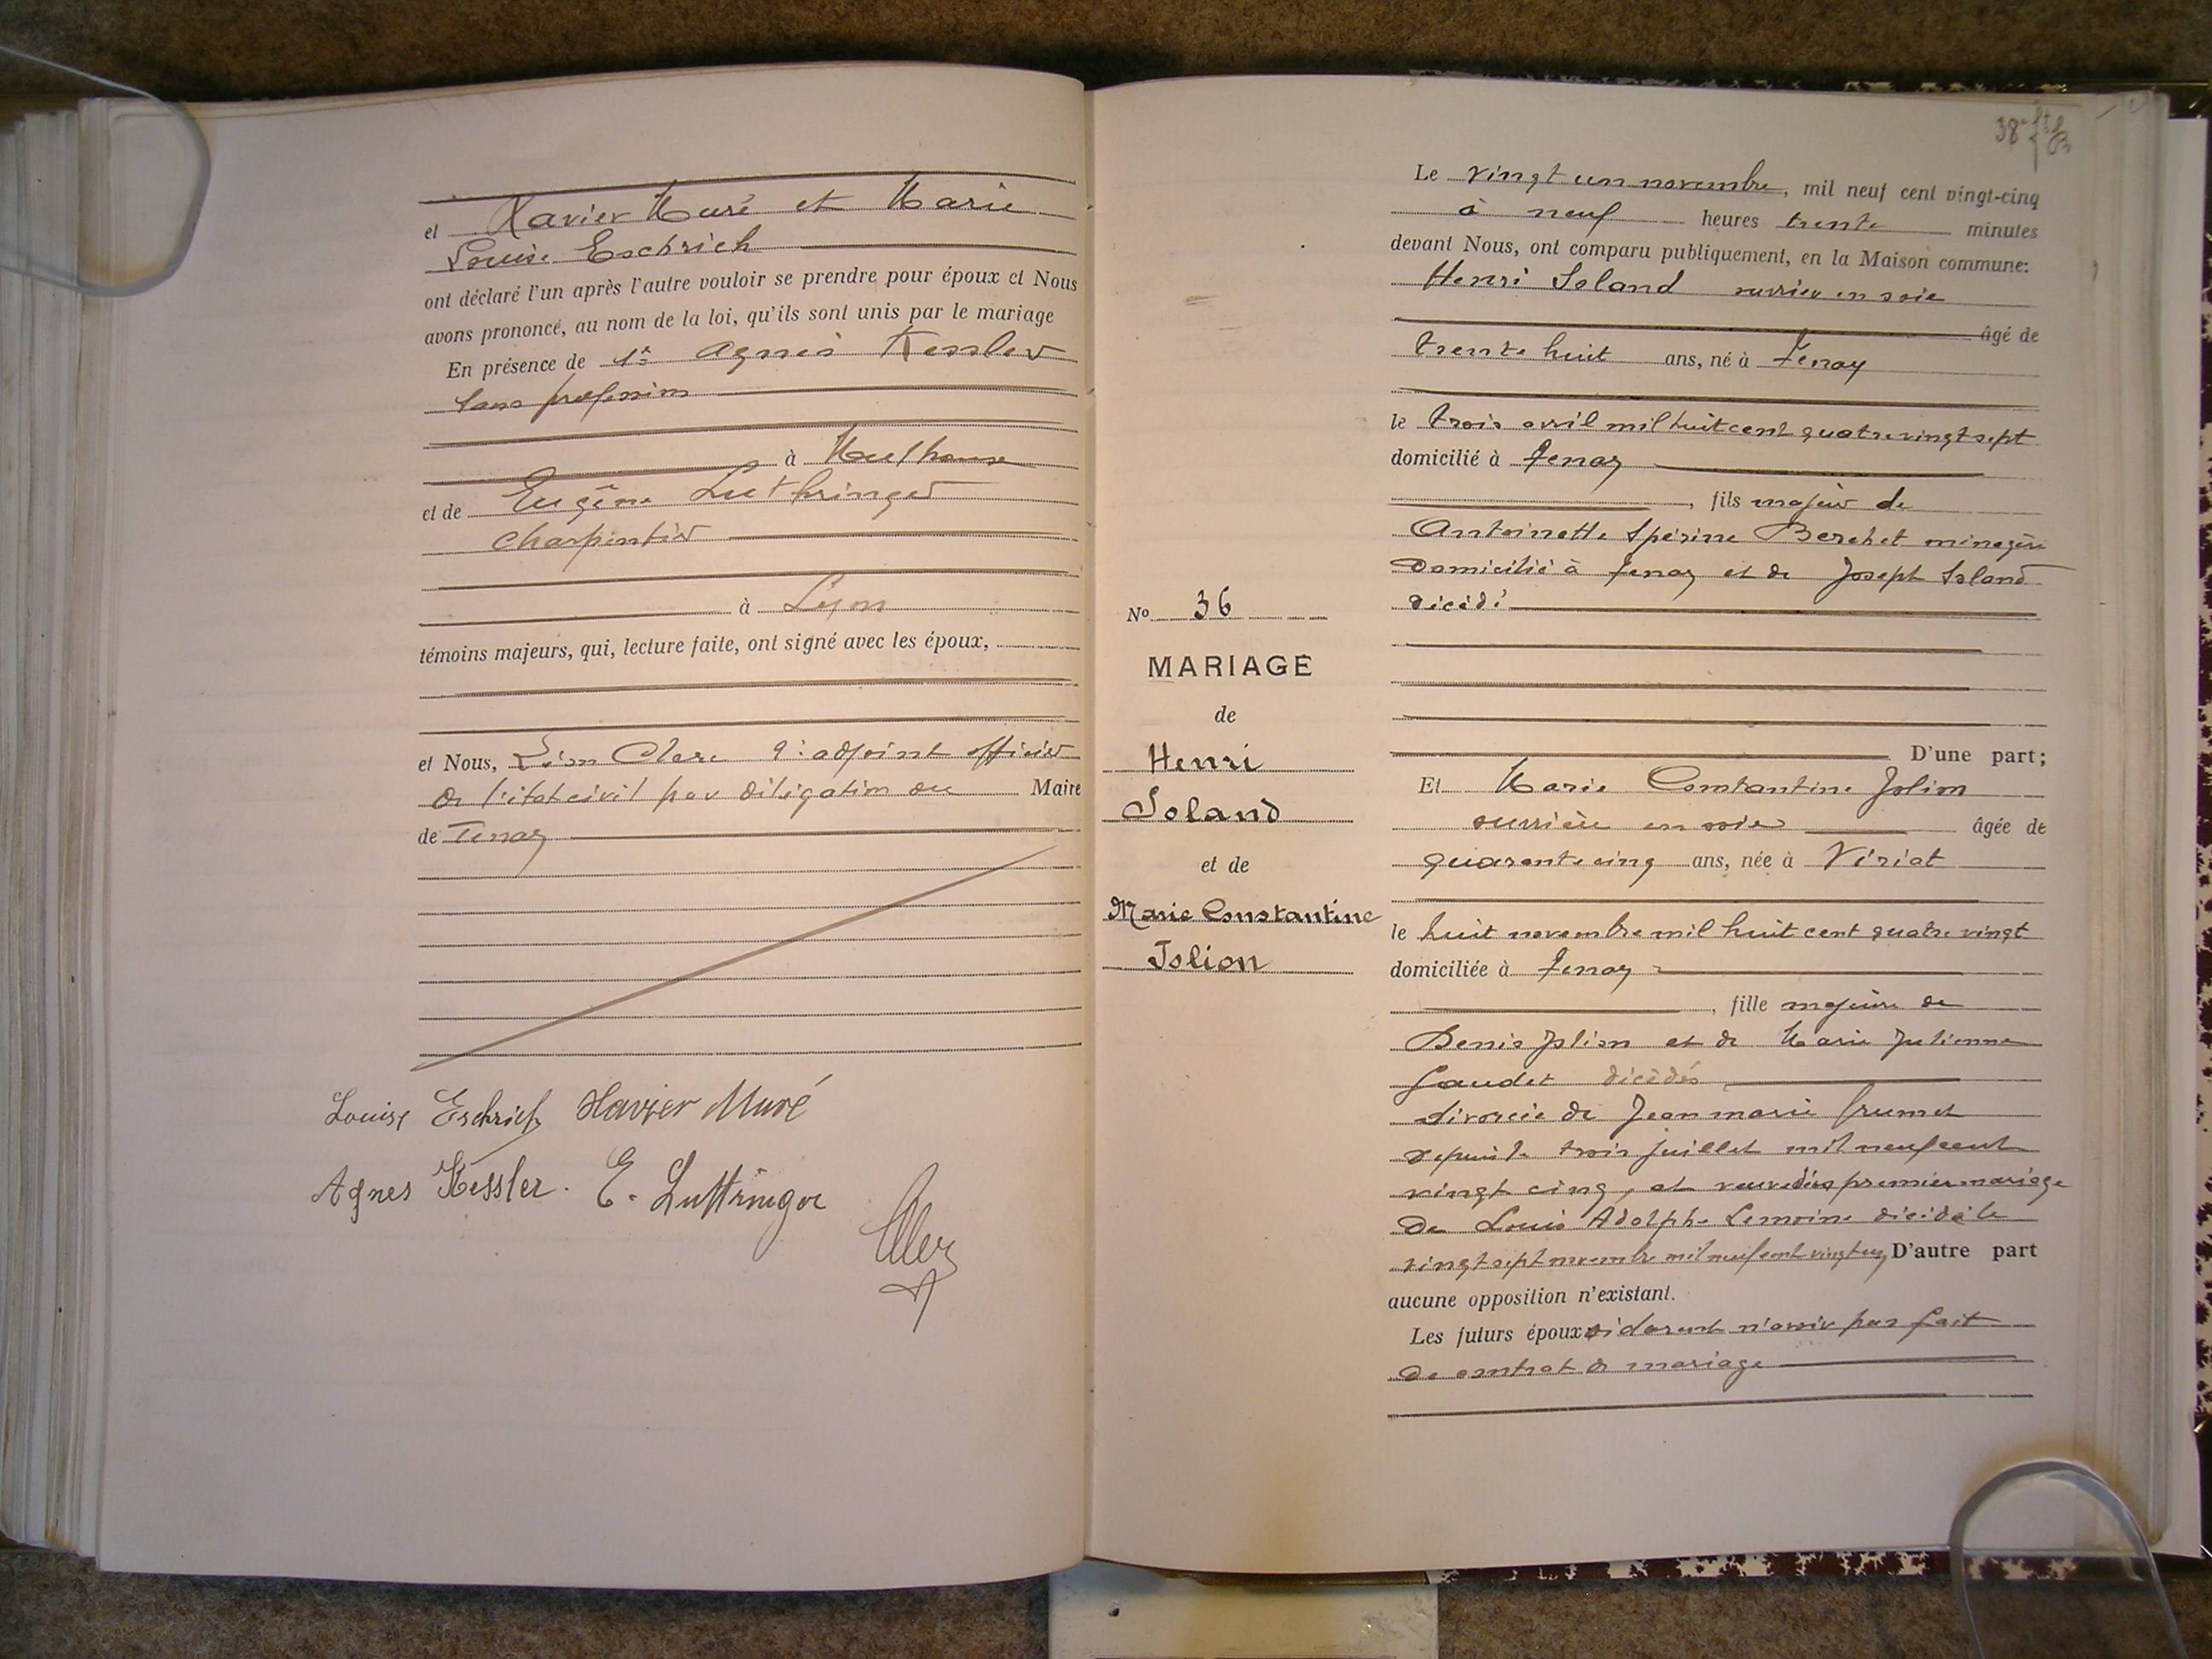 et Xavier Muré et Marie
Louise Eschrich
ont déclaré l'un après l'autre vouloir se prendre pour époux et Nous
avons prononcé, au nom de la loi, qu'ils sont unis par le mariage
En présence de 1° Agnès Kessler
sans profession
à Mulhouse
et de Eugène Luthringer
charpentier
à Lyon
témoins majeurs, qui, lecture faite, ont signé avec les époux,
et Nous, Léon Clerc adjoint officier
de l'état civil par délégation du Maire
de Tenay
Louise Eschrich Xavier Muré
Agnes Kessler. E. Luttringer
Clerc
38e
Le vingt un novembre, mil neuf cent vingt-cinq
à neuf heures trente minutes
devant Nous, ont comparu publiquement, en la Maison commune:
Henri Soland ouvrier en soie
âgé de
trente huit ans, né à Tenay
le trois avril mil huit cent quatre vingt sept
domicilié à Tenay
, fils majeur de
Antoinette Spérine Berchet ménagère
domiciliée à Tenay et de Joseph Soland
décédé
No 36
MARIAGE
de
Henri
Soland
et de
Marie Constantine
Jolion
D'une part;
Et Marie Constantine Jolion
ouvrière en soie âgée de
quarante cinq ans, née à Viriat
le huit novembre mil huit cent quatre vingt
domiciliée à Tenay
, fille majeure de
Denis Jolion et de Marie Julienne
Gaudet décédés
divorcée de Jean marie Grumet
depuis le trois juillet mil neuf cent
vingt cinq, et veuve en premier mariage
de Louis Adolphe Lemoine décédé le
vingt sept novembre mil neuf cent vingt un D'autre part
aucune opposition n'existant.
Les futurs époux déclarent n'avoir pas fait
de contrat de mariage